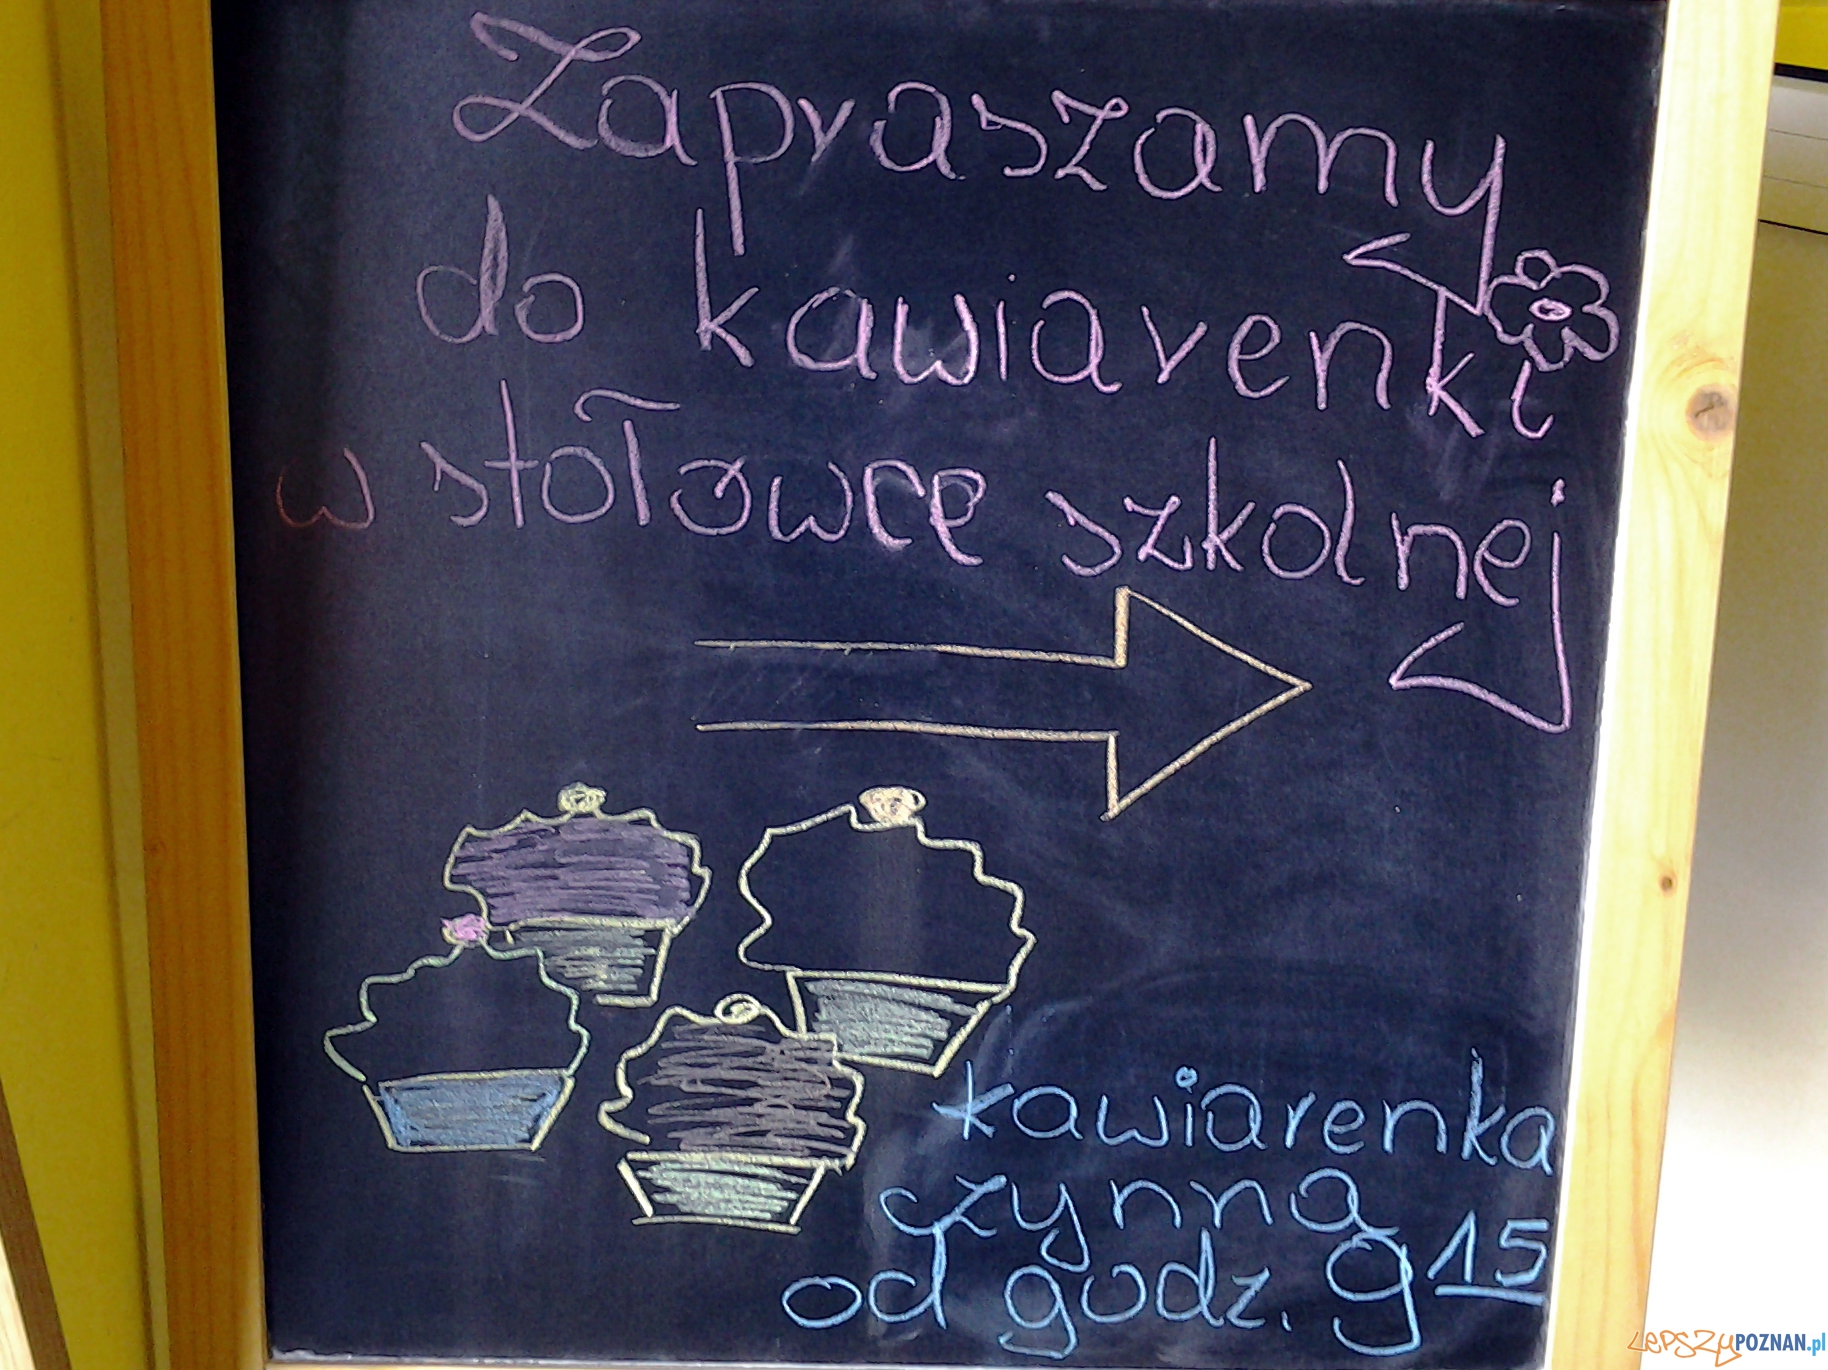 Zapraszamy
do kawiarenki
w stołówce szkolnej
kawiarenka
czynna
od godz. 9 15
LEPSZYPOZNAN.pl